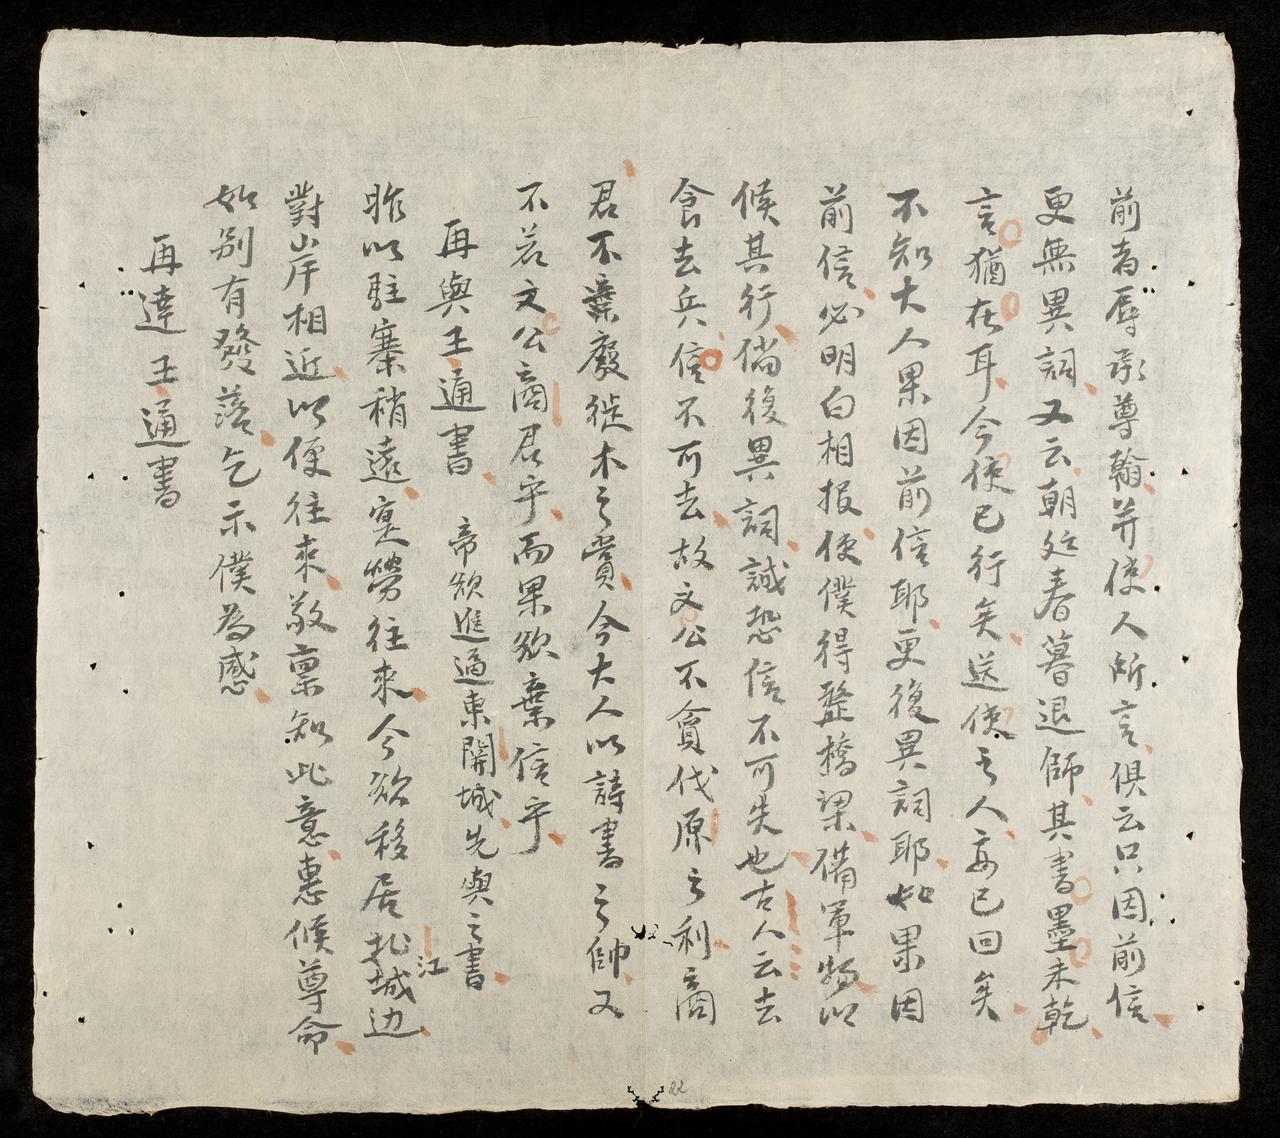 前者辱承尊翰并使人所言俱云只因前信
更無異詞又云朝廷春暮退師其書墨未乾
言猶在耳今使已行矣送使之人亦已回矣
不知大人果因前信耶更復異詞耶如果因
前信必明白相报使僕得整橋梁備軍物以
候其行倘復異詞誠恐信不可失也古人云去
食去兵信不可去故文公不貪伐原之利商
君不棄廢徙木之賞今大人以詩書之帥又
不若文公商君乎而果欲棄信乎
再與王通書 帝欲進逼東関城先與之書
昨以駐寨稍遠寔勞往來今欲移居城边
江
對岸相近以便往來敬禀知此意惠候尊命
如别有發落乞示僕為感
再達王通書
22